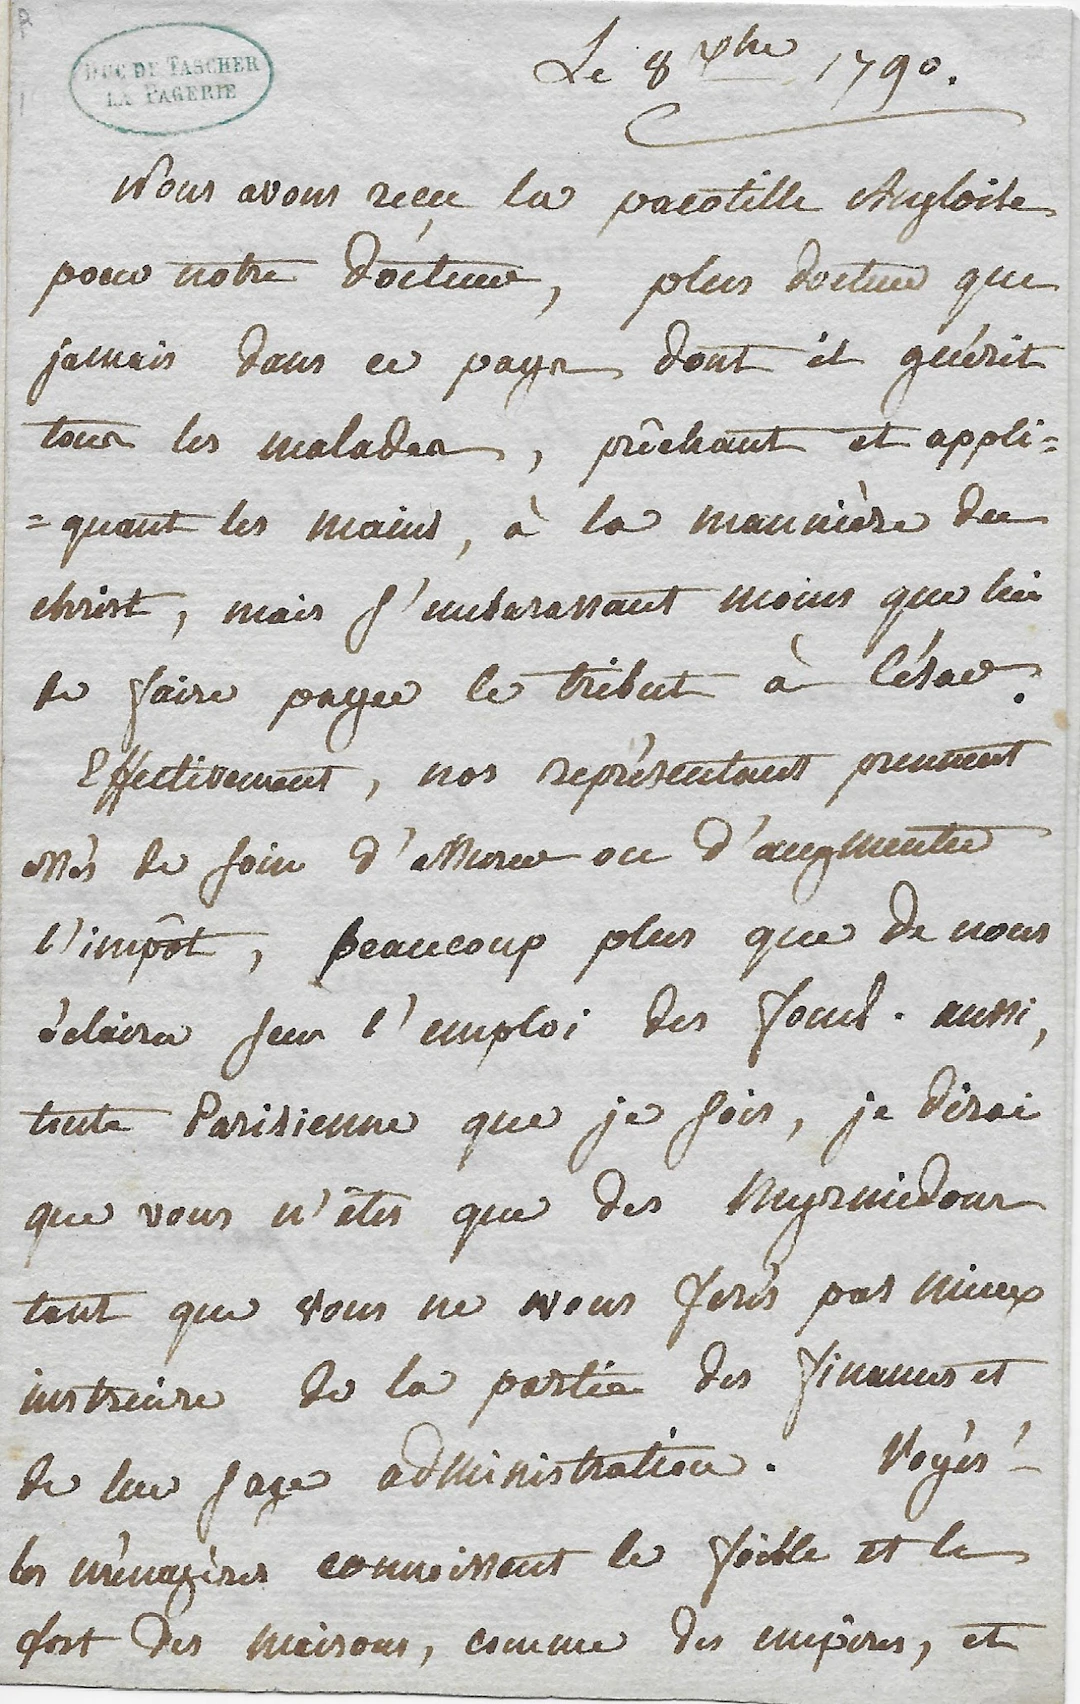 DUC DE TASCHER
LA PAGERIE
Le 8 xbre 1790.
Nous avons reçu la pacotille Angloise
pour notre docteur, plus docteur que
jamais dans ce pays dont il guérit
tous les malades, prêchant et appli=
=quant les mains, à la mannière du
christ, mais s'embarassant moins que lui
de faire payer le tribut à César.
Effectivement, nos représentans prennent
assés de soin d'assurer ou d'augmenter
l'impôt, beaucoup plus que de nous
éclairer sur l'emploi des fonds. aussi,
toute Parisienne que je sois, je dirai
que vous n'êtes que des Myrmidons
tant que vous ne nous ferés pas mieux
instruire de la partie des finances et
de leur sage administration. Voyés
les ménagères connoissent le foible et le
fort des maisons, comme des empires, et